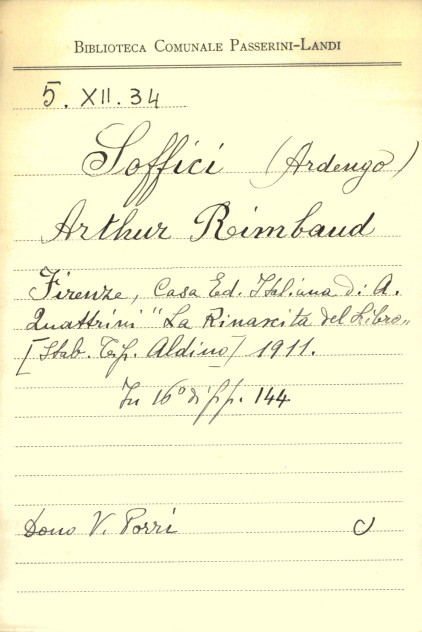 BIBLIOTECA COMUNALE PASSERINI-LANDI
5. XII. 34
Soffici (Ardengo)
Arthur Rimbaud
Firenze, Casa Ed. Italiana di A.
Quattrini "La Rinascita del Libro"
[Stab. Tip. Aldino] 1911.
In 16° di pp. 144
Dono V. Porri